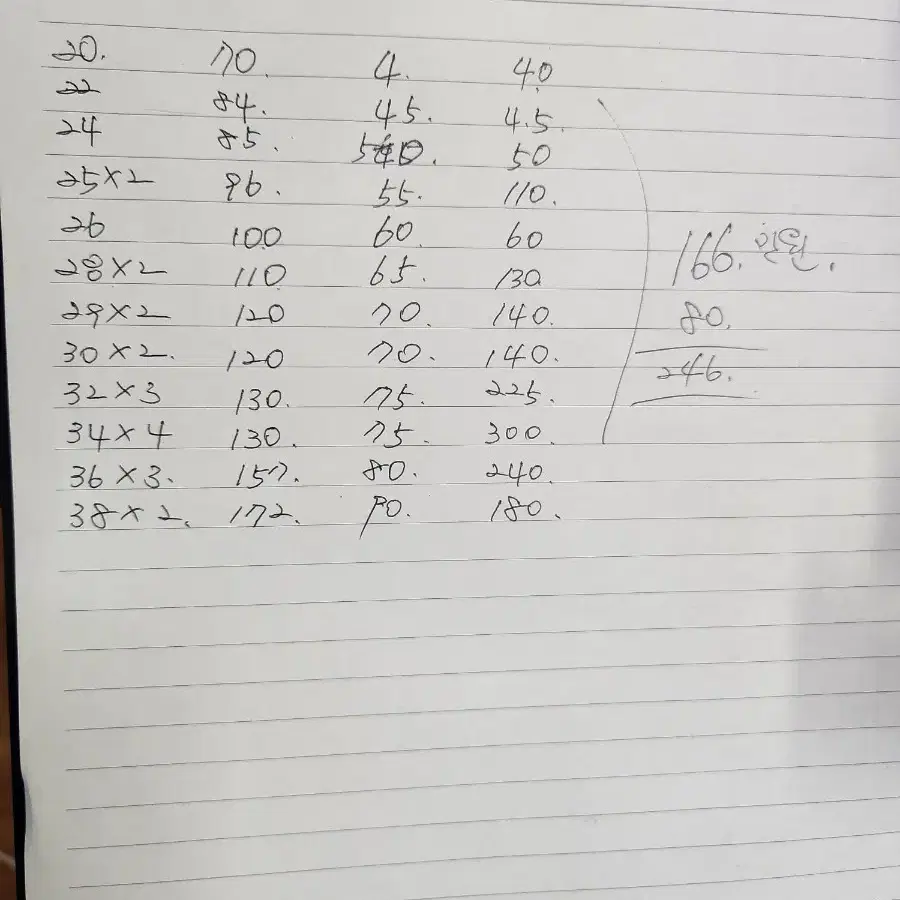 20. 70. 4. 40
22 84. 45. 4.5.
24 85. 50. 50
25×2 96. 55. 110.
26 100 60. 60
28×2 110 65. 130
29×2 120 70. 140.
30×2. 120 70. 140.
32×3 130. 75. 225.
34×4 130. 75. 300.
36×3. 157. 80. 240.
38×2. 172. 90. 180.
166. 만원.
80.
246.